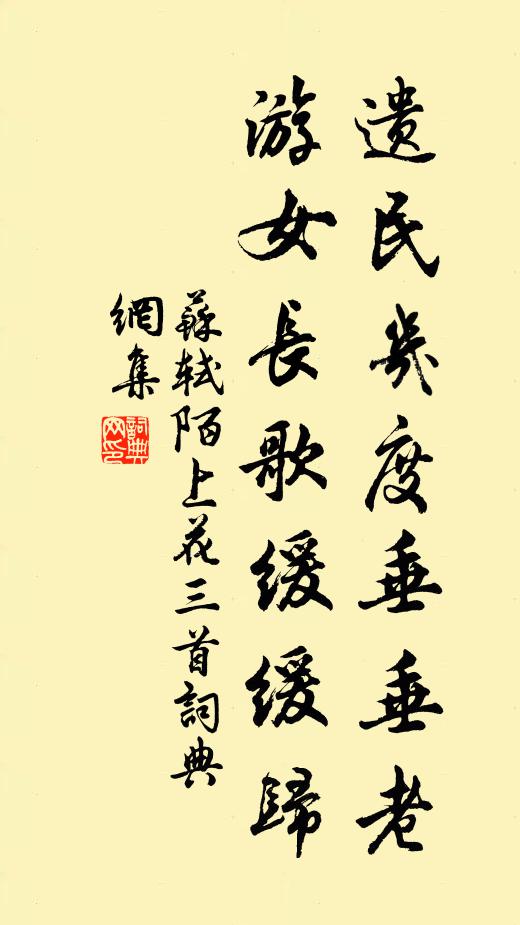 遺民幾度垂垂老
游女長歌緩緩歸
蘇軾陌上花三首詞典
網集
詞典
网印